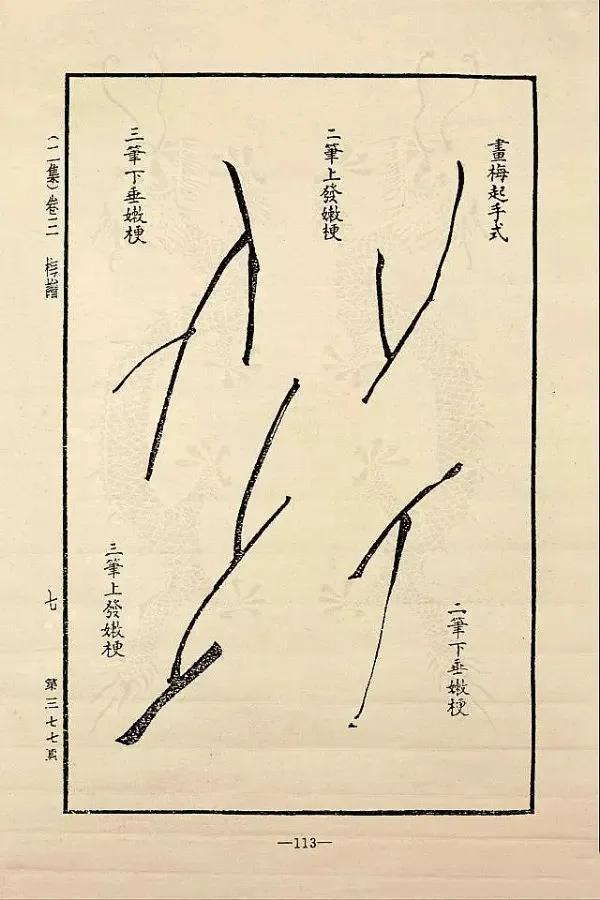 畫梅起手式
二筆上發嫩梗
二筆下垂嫩梗
三筆下垂嫩梗
三筆上發嫩梗
（二集）卷二 梅譜
七
第三七七頁
—113—